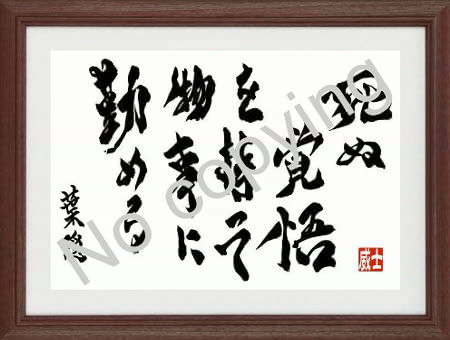 死ぬ
覚悟
を持って
物事に
勤める
葉隠
士威
No copying